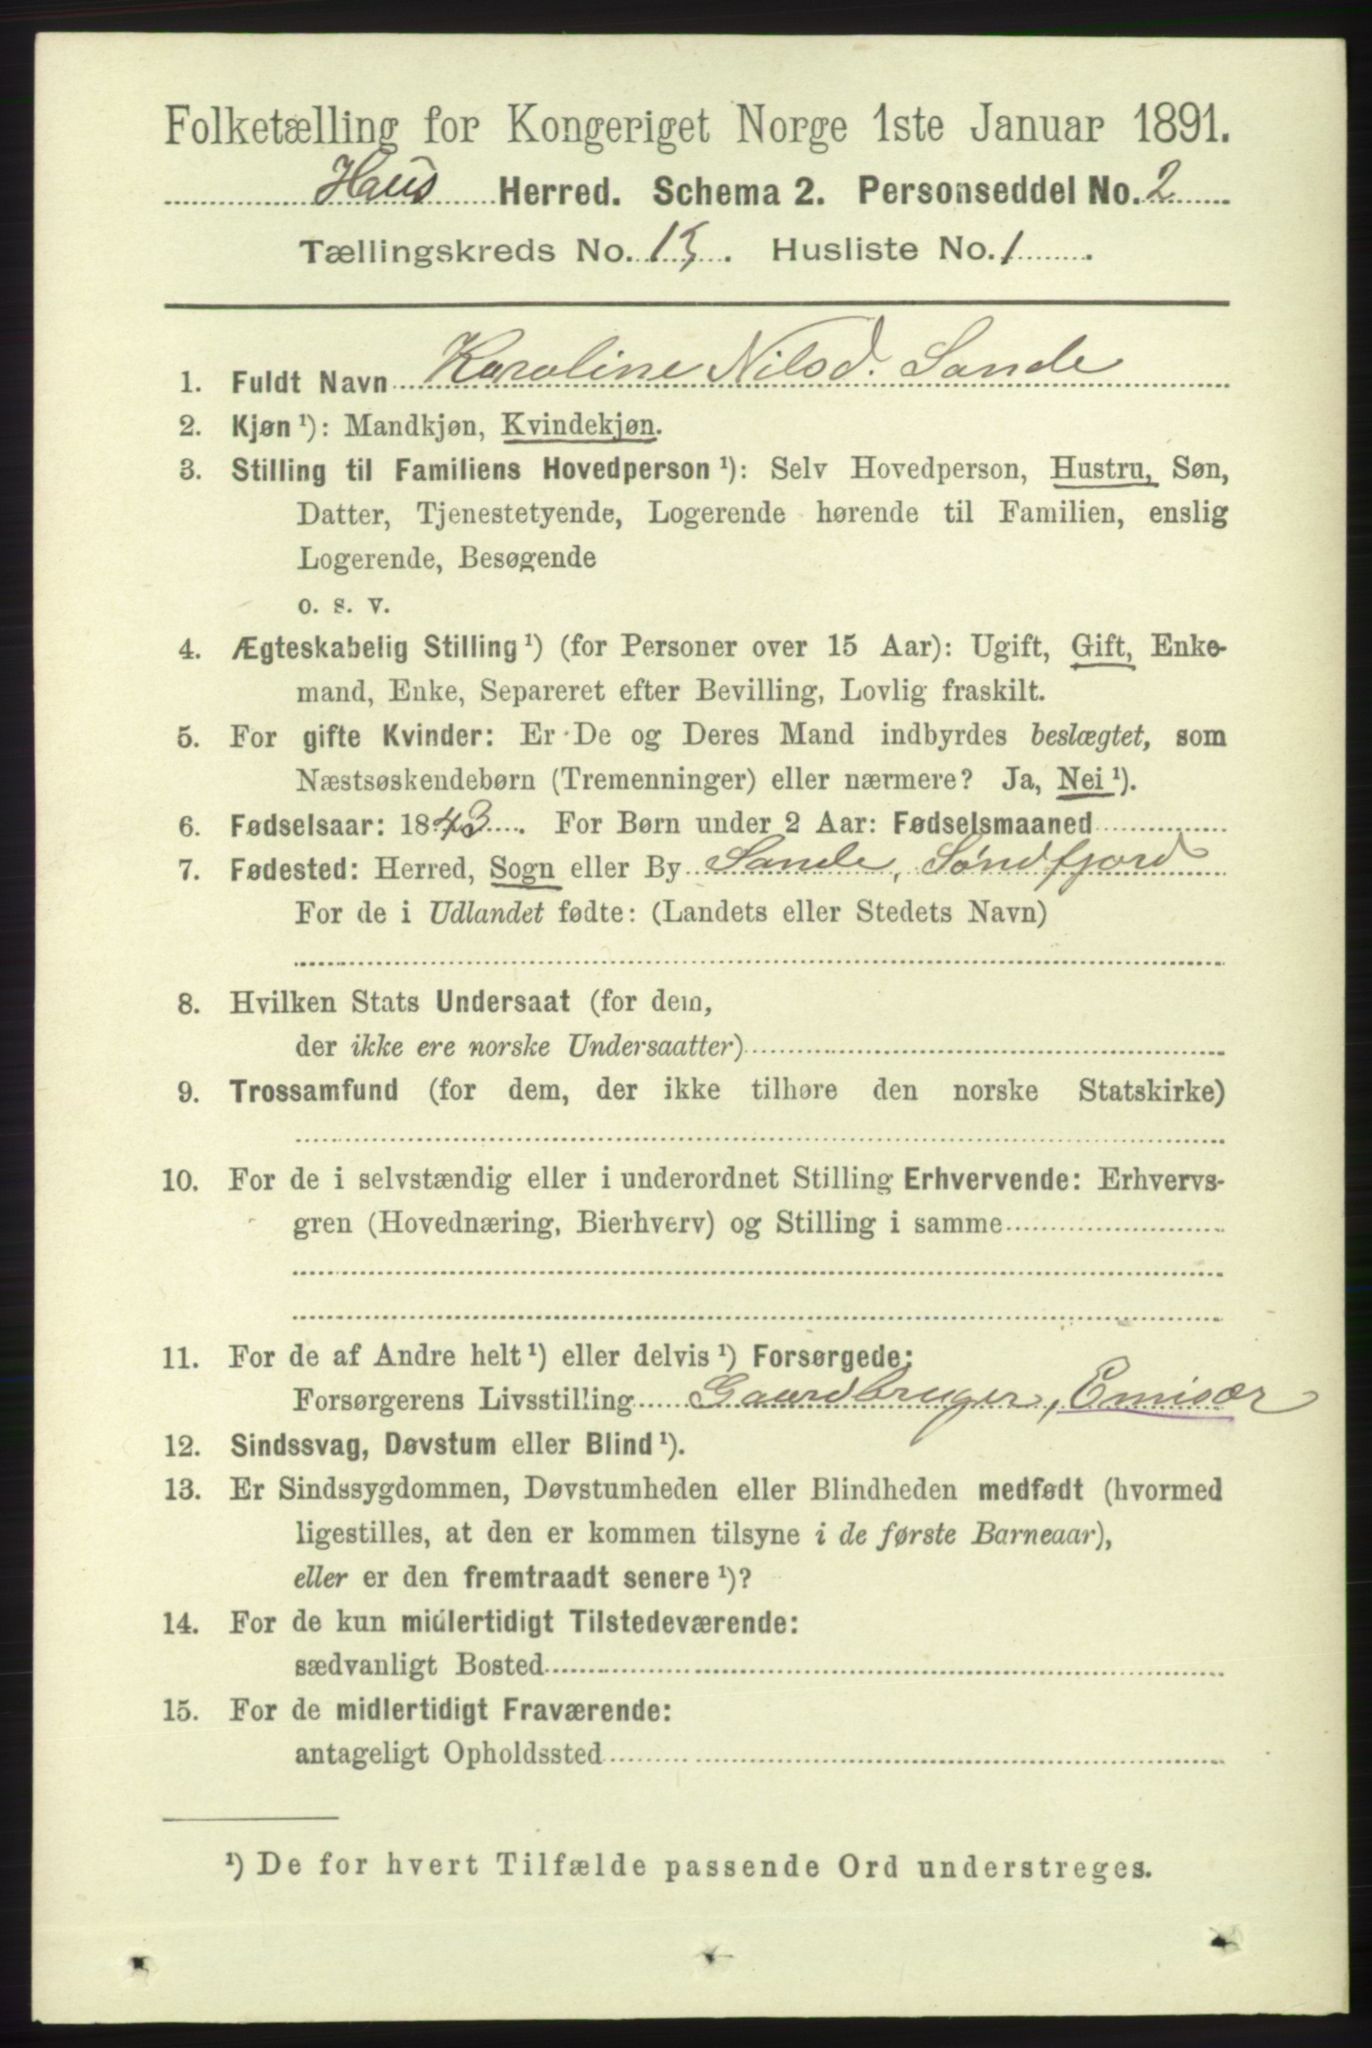 Folketælling for Kongeriget Norge 1ste Januar 1891.
Haus Herred. Schema 2. Personseddel No. 2
Tællingskreds No. 15. Husliste No. 1.
1. Fuldt Navn Karoline Nilsd. Sande
2. Kjøn ¹): Mandkjøn, Kvindekjøn.
3. Stilling til Familiens Hovedperson ¹): Selv Hovedperson, Hustru, Søn,
Datter, Tjenestetyende, Logerende hørende til Familien, enslig
Logerende, Besøgende
o. s. v.
4. Ægteskabelig Stilling ¹) (for Personer over 15 Aar): Ugift, Gift, Enke-
mand, Enke, Separeret efter Bevilling, Lovlig fraskilt.
5. For gifte Kvinder: Er De og Deres Mand indbyrdes beslægtet, som
Næstsøskendebørn (Tremenninger) eller nærmere? Ja, Nei ¹).
6. Fødselsaar: 1843. For Børn under 2 Aar: Fødselsmaaned
7. Fødested: Herred, Sogn eller By Sande, Søndfjord
For de i Udlandet fødte: (Landets eller Stedets Navn)
8. Hvilken Stats Undersaat (for dem,
der ikke ere norske Undersaatter)
9. Trossamfund (for dem, der ikke tilhøre den norske Statskirke)
10. For de i selvstændig eller i underordnet Stilling Erhvervende: Erhvervs-
gren (Hovednæring, Bierhverv) og Stilling i samme
11. For de af Andre helt ¹) eller delvis ¹) Forsørgede:
Forsørgerens Livsstilling Gaardbruger, Emisær
12. Sindssvag, Døvstum eller Blind ¹).
13. Er Sindssygdommen, Døvstumheden eller Blindheden medfødt (hvormed
ligestilles, at den er kommen tilsyne i de første Barneaar),
eller er den fremtraadt senere ¹)?
14. For de kun midlertidigt Tilstedeværende:
sædvanligt Bosted
15. For de midlertidigt Fraværende:
antageligt Opholdssted
¹) De for hvert Tilfælde passende Ord understreges.